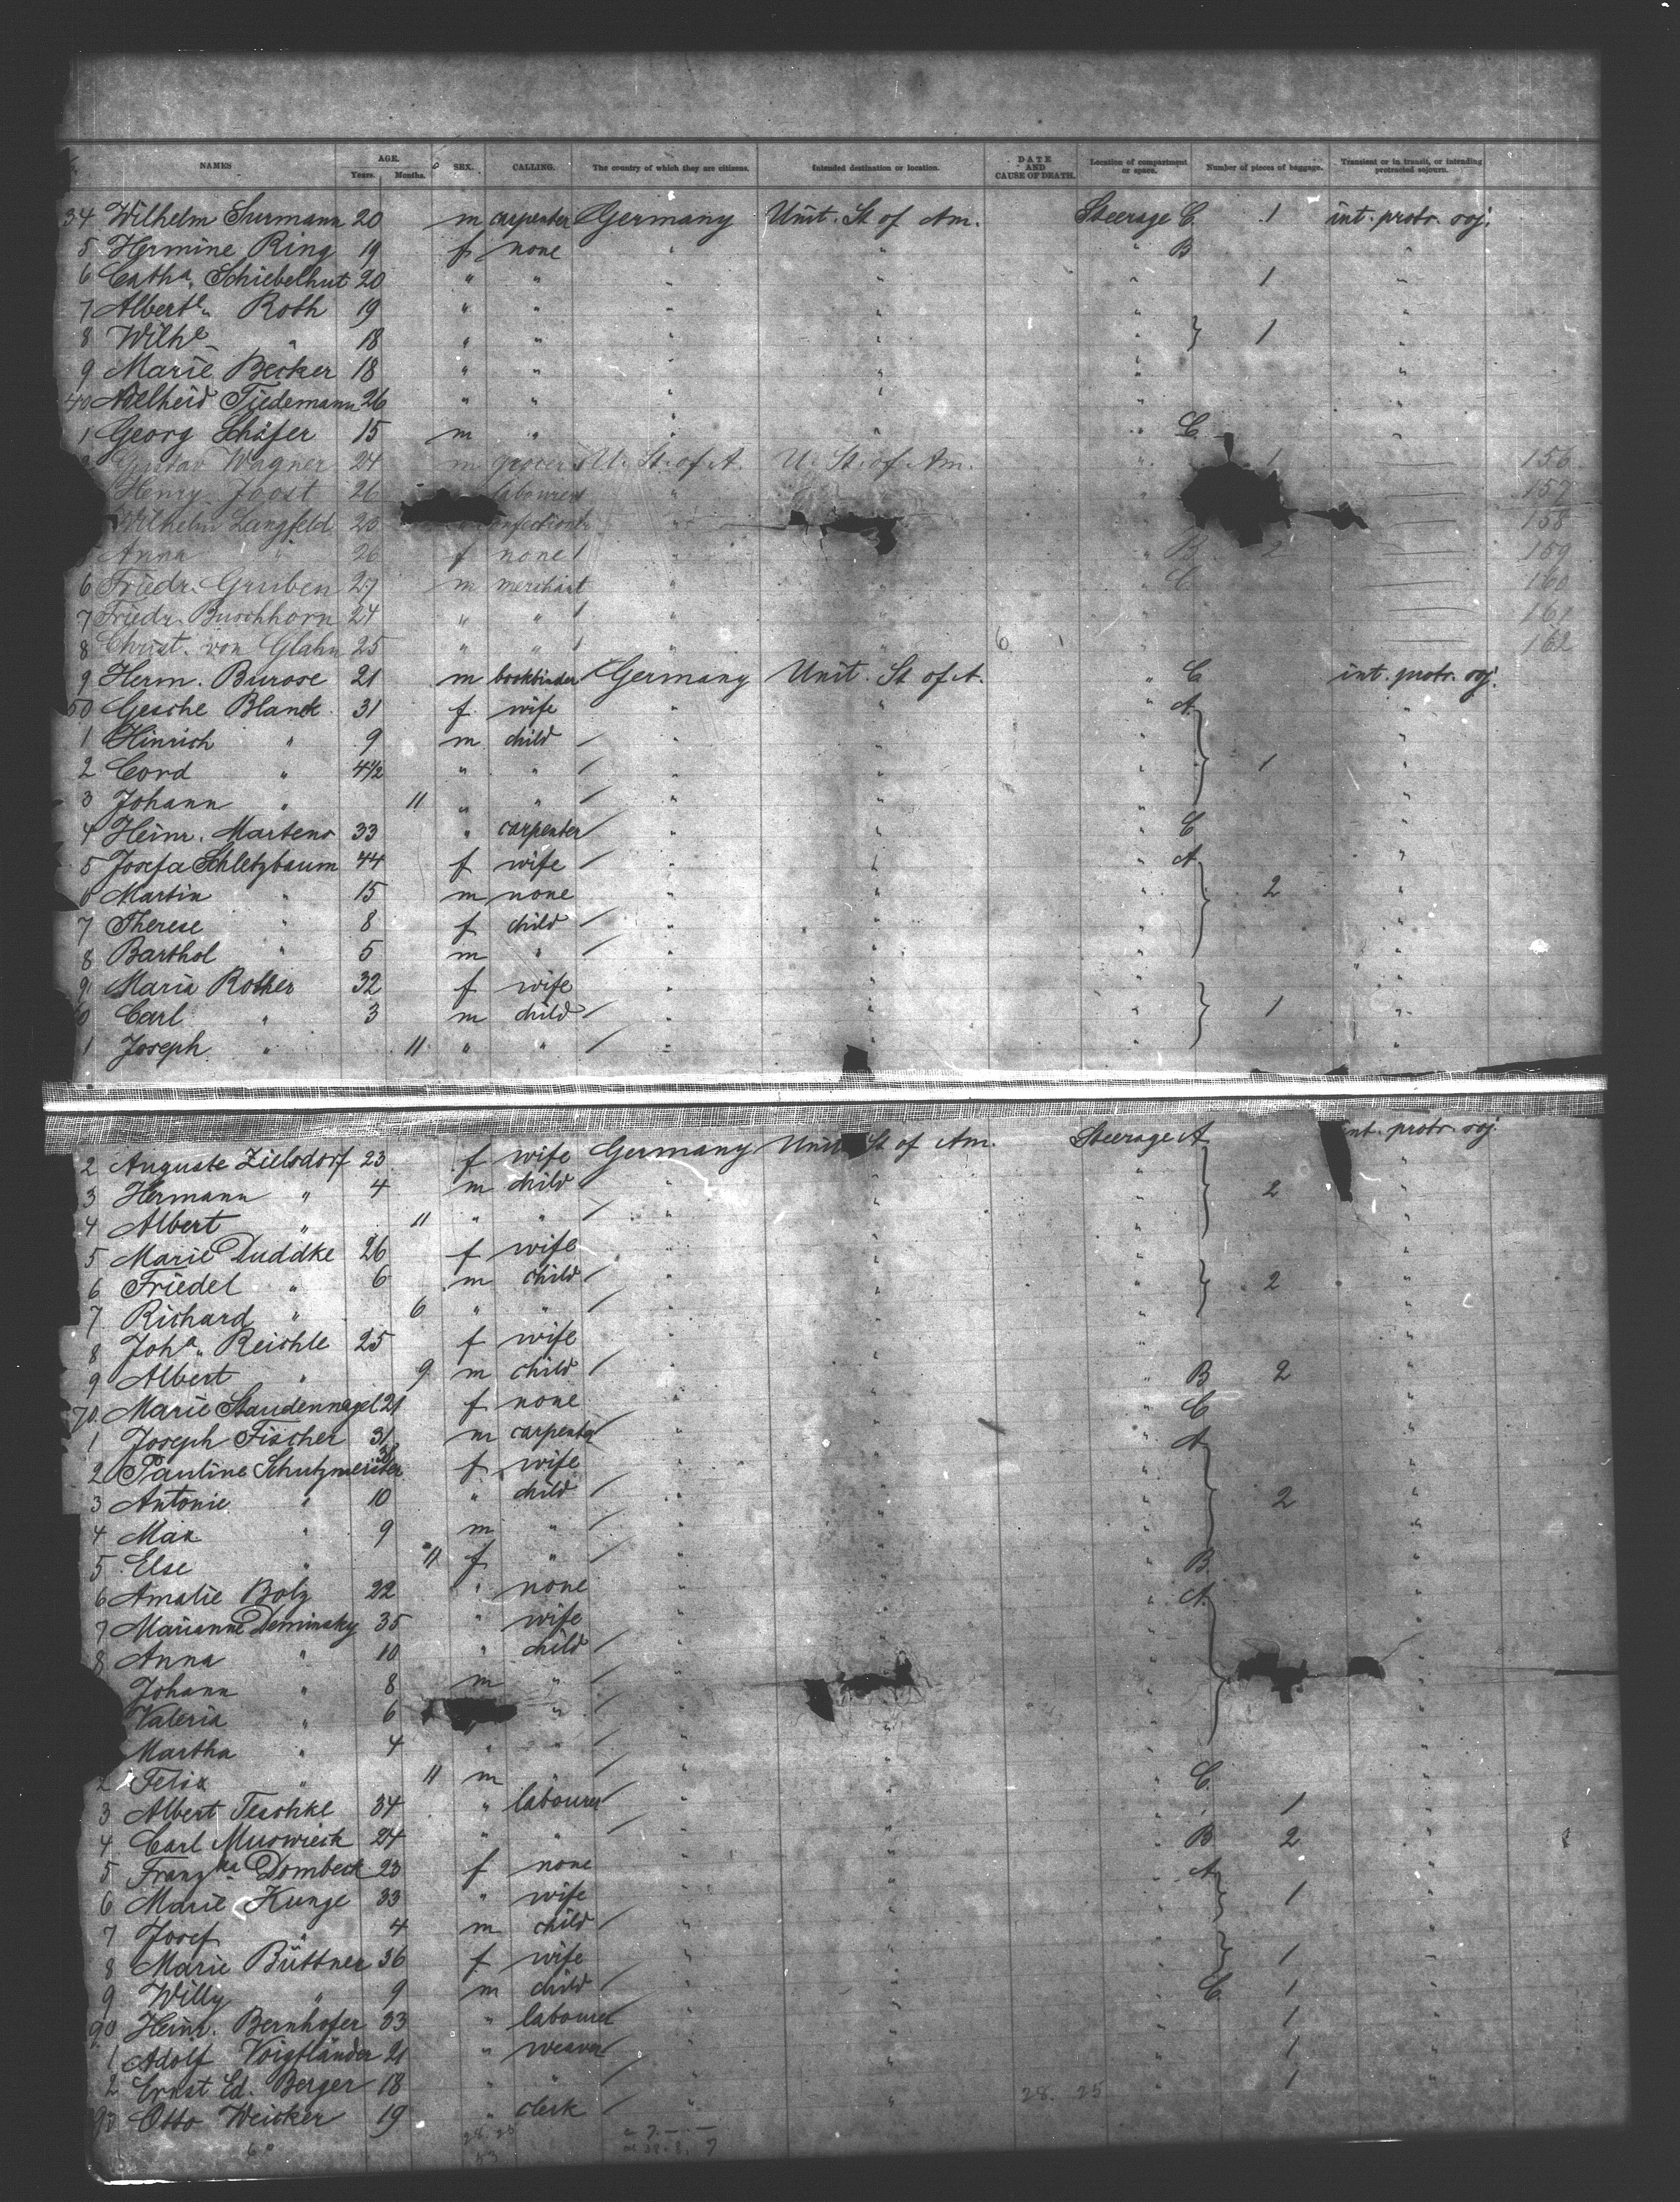 NAMES AGE. Years. Months. SEX. CALLING. The country of which they are citizens. Intended destination or location. DATE AND CAUSE OF DEATH. Location of compartment or space. Number of pieces of baggage. Transient or in transit, or intending protracted sojourn.
34 Wilhelm Surmann 20 m carpenter Germany Unit. St of Am. Steerage C. 1 int. protr. soj.
5 Hermine Ring 19 f none " " " B "
6 Cath.a Schiebelhut 20 " " " " " 1 "
7 Albert.e Roth 19 " " " " " "
8 Wilh.e " 18 " " " " " } 1 "
9 Marie Becker 18 " " " " " "
40 Adelheid Tiedemann 26 " " " " " "
1 Georg Schäfer 15 m " " " " C. "
Gustav Wagner 24 m grocer U. St. of A. U. St. of Am. " 1 — 156
Henry Joost 26 labourer " " — 157
Wilhelm Langfeld 25 confection. " — 158
Anna " 26 f none / " " B 2 — 159
6 Friedr. Gruben 27 m merchant " " " C. — 160
7 Friedr. Buschhorn 24 " " / " " " — 161
8 Christ. von Glahn 25 " " / " " 6 " — 162
9 Herm. Burose 21 m bookbinder Germany Unit. St of A. " C int. protr. soj.
50 Gesche Blanck 31 f wife " " " A "
1 Hinrich " 9 m child / " " " "
2 Cord " 4 1/2 " " / " " " } 1 "
3 Johann " 11 " " / " " " "
4 Heinr. Martens 33 " carpenter / " " " C "
5 Josefa Schletzbaum 44 f wife / " " " A "
6 Martin " 15 m none " " " } 2 "
7 Therese " 8 f child / " " " "
8 Barthol " 5 m " / " " " "
9 Maria Rother 32 f wife " " " "
0 Carl " 3 m child / " " " } 1 "
1 Joseph " 11 " " / " " " "
2 Auguste Zielsdorf 23 f wife Germany Unit. St of Am. Steerage A int. protr. soj.
3 Hermann " 4 m child / " " " } 2 "
4 Albert " 11 " " / " " " "
5 Marie Duddke 26 f wife " " " "
6 Friedel " 6 m child / " " " } 2 "
7 Richard " 6 " " / " " " "
8 Joh.a Reichle 25 f wife " " " "
9 Albert " 9 m child / " " " B 2 "
70 Marie Staudennagel 21 f none " " " C "
1 Joseph Fischer 31 m carpenter / " " " A "
2 Pauline Schutzmeister 38 f wife " " " "
3 Antonie " 10 " child / " " " } 2 "
4 Max " 9 m " / " " " "
5 Else " 11 f " / " " " B. "
6 Amalie Bolz 22 " none " " " A "
7 Marianne Deminsky 35 " wife " " " "
8 Anna " 10 " child / " " " "
Johann " 8 m " / " " }
Valeria " 6 " / " " " "
Martha " 4 " " / " " " "
2 Felix " 11 m " / " " " C "
3 Albert Teschke 34 " labourer / " " " 1 "
4 Carl Muswieck 24 " " / " " " B 2 "
5 Franz.ka Dombeck 23 f none " " " A "
6 Marie Kunze 33 " wife " " " } 1 "
7 Josef " 4 m child / " " " "
8 Marie Büttner 36 f wife " " " } 1 "
9 Willy " 9 m child / " " " C. 1 "
90 Heinr. Bernhofer 33 " labourer " " " 1 "
1 Adolf Voigtländer 21 " weaver / " " " 1 "
2 Ernst Ed. Berger 18 " " / " " " 1 "
93 Otto Weicker 19 " clerk / " " 28. 25
28.25
53